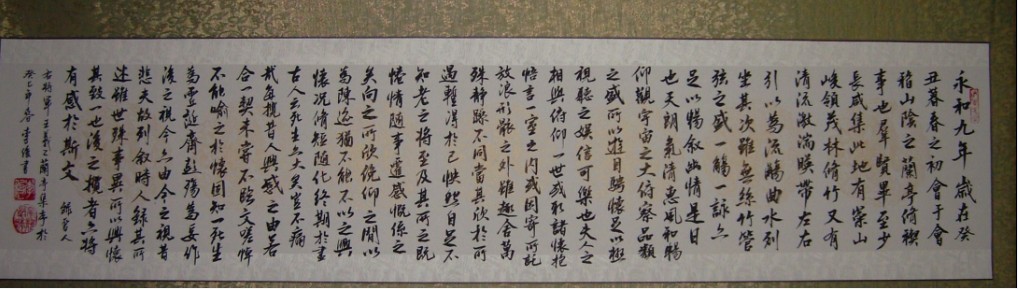 永和九年歲在癸
丑暮春之初會于會
稽山陰之蘭亭脩禊
事也羣賢畢至少
長咸集此地有崇山
峻領茂林脩竹又有
清流激湍暎帶左右
引以為流觴曲水列
坐其次雖無絲竹管
弦之盛一觴一詠亦
足以暢敘幽情是日
也天朗氣清惠風和暢
仰觀宇宙之大俯察品類
之盛所以遊目騁懷足以極
視聽之娛信可樂也夫人之
相與俯仰一世或取諸懷抱
悟言一室之内或因寄所託
放浪形骸之外雖趣舍萬
殊靜躁不同當其欣於所
遇暫得於己怏然自足不
知老之將至及其所之既
惓情隨事遷感慨係之
矣向之所欣俛仰之閒以
為陳迹猶不能不以之興
懷況脩短隨化終期於盡
古人云死生亦大矣豈不痛
哉每攬昔人興感之由若
合一契未嘗不臨文嗟悼
不能喻之於懷固知一死生
為虛誕齊彭殤為妄作
後之視今亦由今之視昔
悲夫故列敘時人錄其所
述雖世殊事異所以興懷
其致一也後之攬者亦將
有感於斯文 錄晉人
右將軍王羲之蘭亭集序於
癸巳年春李書